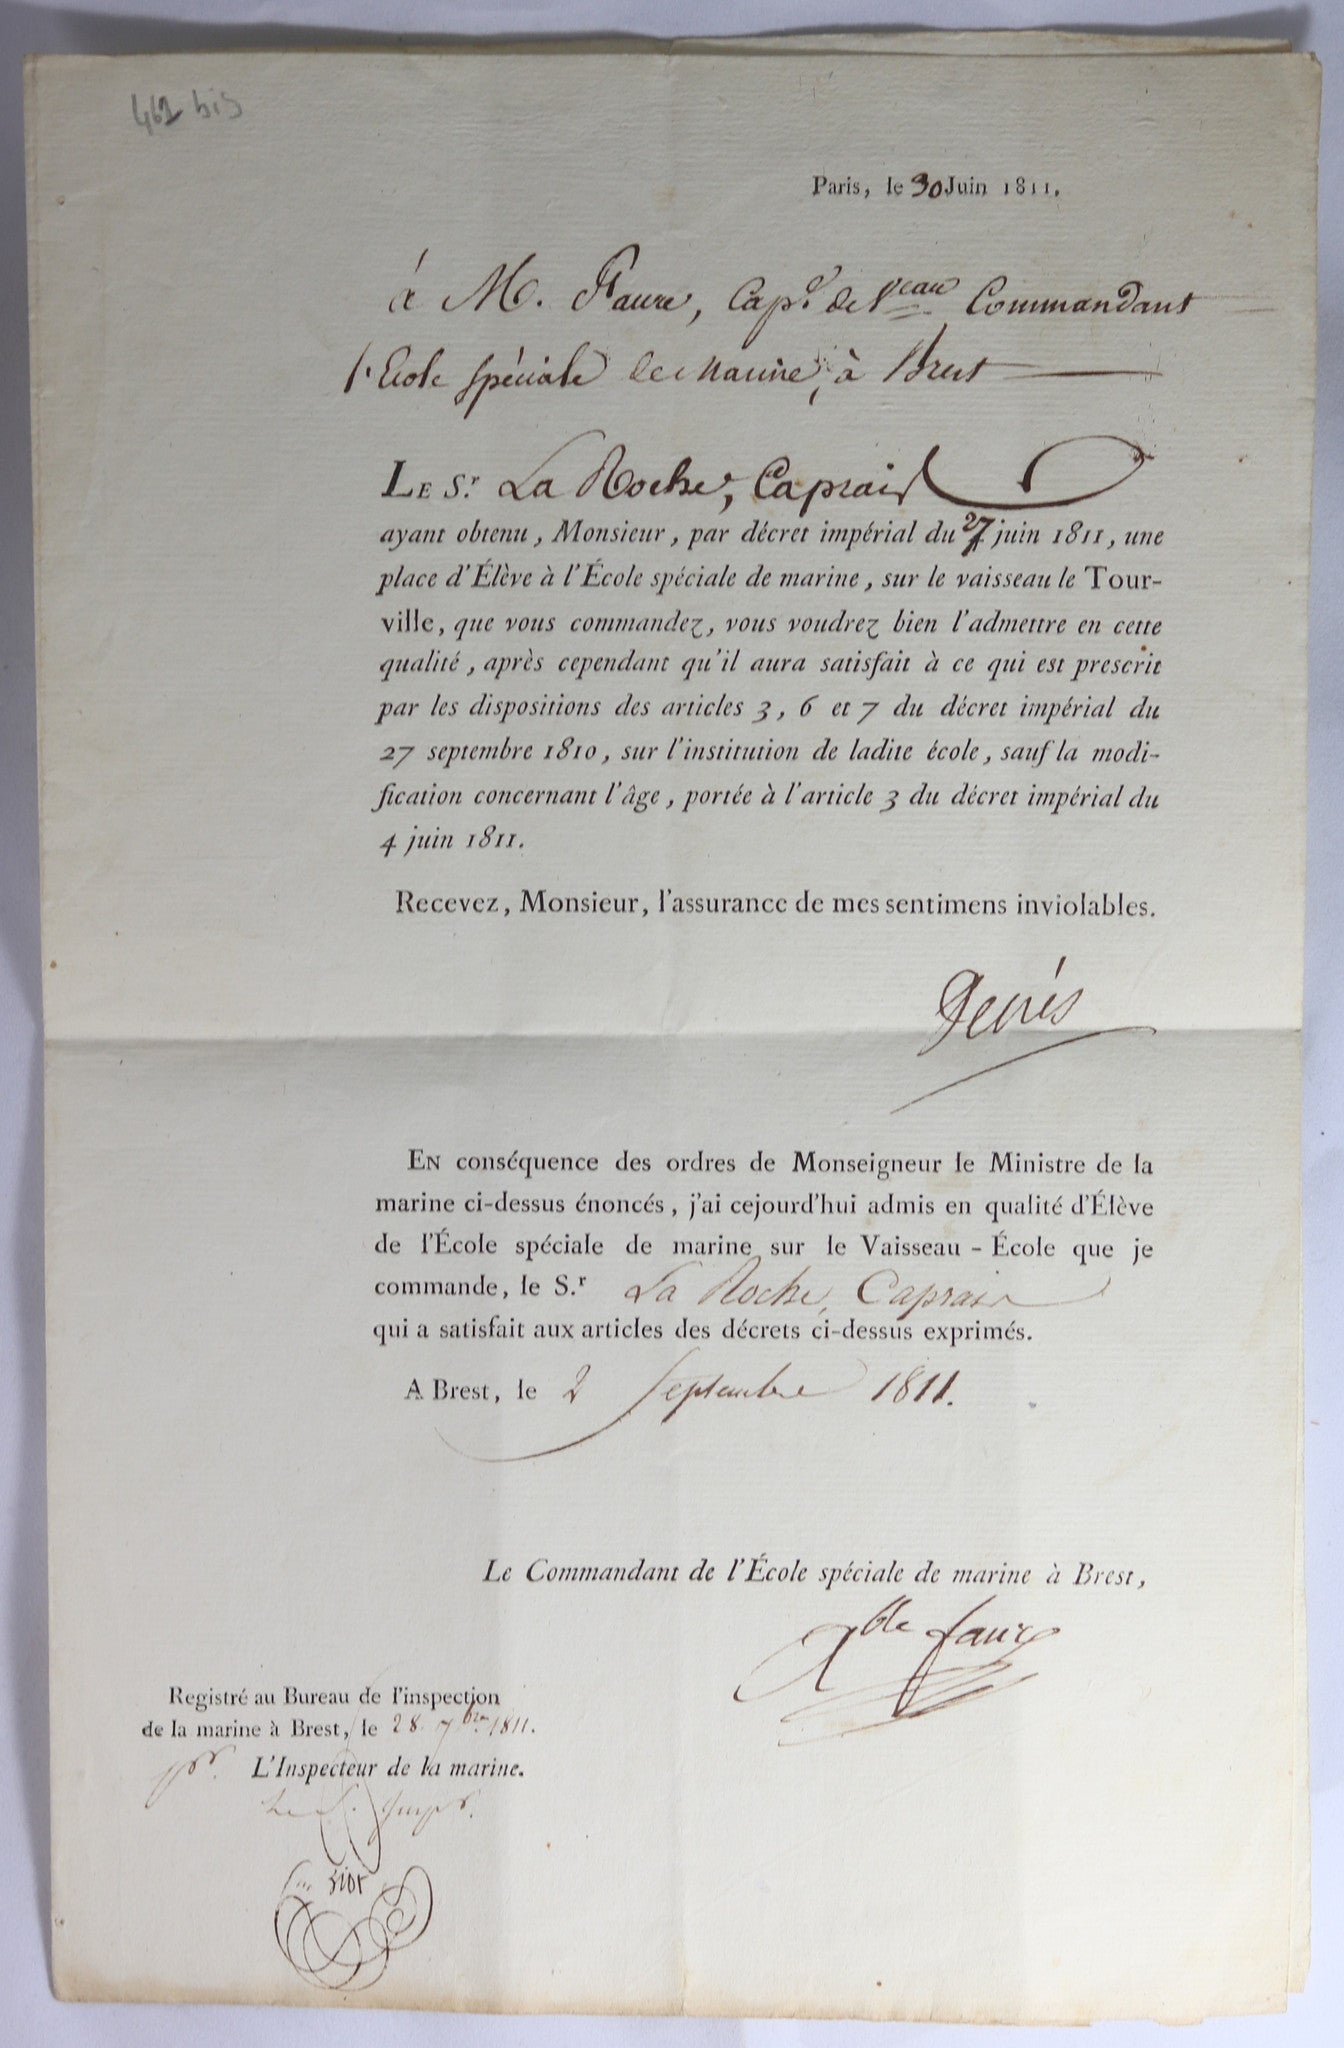 462 bis
Paris, le 30 Juin 1811.
à M. Faure, Cap.e de V.eau Commandant
l'Ecole spéciale de marine, à Brest
Le S.r La Roche, Caprais
ayant obtenu, Monsieur, par décret impérial du 27 juin 1811, une
place d'Élève à l'École spéciale de marine, sur le vaisseau le Tour-
ville, que vous commandez, vous voudrez bien l'admettre en cette
qualité, après cependant qu'il aura satisfait à ce qui est prescrit
par les dispositions des articles 3, 6 et 7 du décret impérial du
27 septembre 1810, sur l'institution de ladite école, sauf la modi-
fication concernant l'âge, portée à l'article 3 du décret impérial du
4 juin 1811.
Recevez, Monsieur, l'assurance de mes sentimens inviolables.
Decrès
En conséquence des ordres de Monseigneur le Ministre de la
marine ci-dessus énoncés, j'ai cejourd'hui admis en qualité d'Élève
de l'École spéciale de marine sur le Vaisseau - École que je
commande, le S.r La Roche, Caprais
qui a satisfait aux articles des décrets ci-dessus exprimés.
A Brest, le 2 Septembre 1811.
Le Commandant de l'École spéciale de marine à Brest,
Faure
Registré au Bureau de l'inspection
de la marine à Brest, le 28 7bre 1811.
pr. L'Inspecteur de la marine.